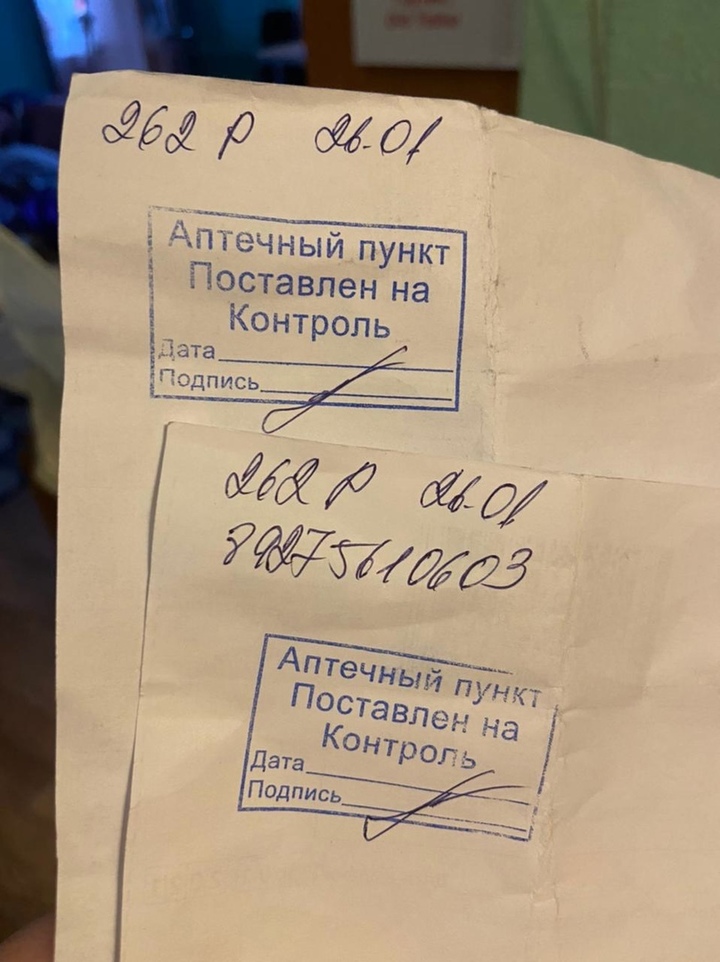 262 Р 26.01
Аптечный пункт
Поставлен на
Контроль
Дата
Подпись
262 Р 26.01
89275610603
Аптечный пункт
Поставлен на
Контроль
Дата
Подпись